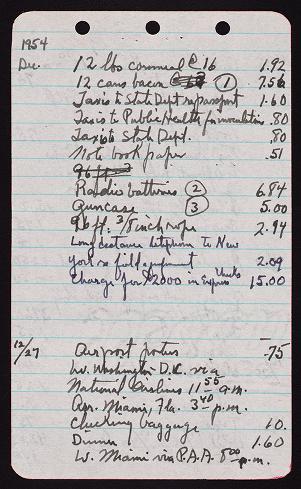 1954
Dec. 12 lbs cornmeal @ 16 1.92
12 cans bacon @ 63 ① 7.56
Taxis to State Dept re passport 1.60
Taxis to Public Health for innoculations .80
Taxi to State Dept. .80
Note book paper .51
96 ft
Radio batteries ② 6.84
Guncase ③ 5.00
96 ft. 3/8 inch rope 2.94
Long distance telephone to New
York re field equipment 2.09
Charge for $2000 in Express Checks 15.00
12/27 Airport porter .75
Lv. Washington D.C. via
National Airlines 11 55 a.m.
Arr. Miami, Fla. 3 40 p.m.
Checking baggage 10.
Dinner 1.60
Lv. Miami via P.A.A. 8 00 p.m.